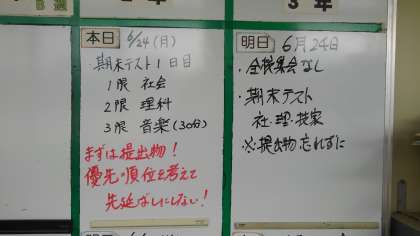 2年
3年
本日 6/24(月)
期末テスト1日目
1限 社会
2限 理科
3限 音楽(30分)
まずは提出物!
優先順位を考えて
先延ばしにしない!
明日 6月24日
・全校集会なし
・期末テスト
社・理・技家
※提出物忘れずに